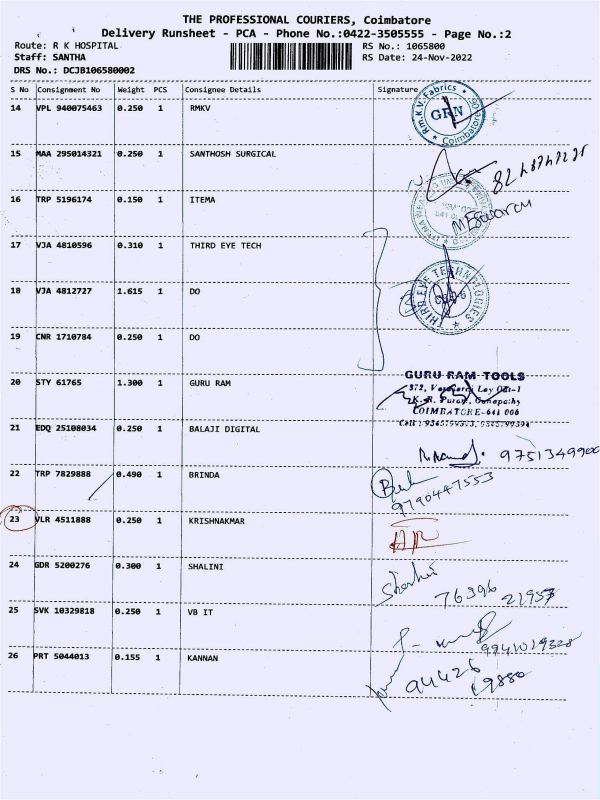 THE PROFESSIONAL COURIERS, Coimbatore
Delivery Runsheet - PCA - Phone No.:0422-3505555 - Page No.:2
Route: R K HOSPITAL RS No.: 1065800
Staff: SANTHA RS Date: 24-Nov-2022
DRS No.: DCJB106580002
S No Consignment No Weight PCS Consignee Details Signature
14 VPL 940075463 0.250 1 RMKV
Rm.K.V. Fabrics
GRN
Coimbatore
15 MAA 295014321 0.250 1 SANTHOSH SURGICAL
16 TRP 5196174 0.150 1 ITEMA
M Eswaran
17 VJA 4810596 0.310 1 THIRD EYE TECH
THIRD EYE TECHNOLOGIES
18 VJA 4812727 1.615 1 DO
19 CNR 1710784 0.250 1 DO
20 STY 61765 1.300 1 GURU RAM
GURU RAM TOOLS
K. R. Puram, Ganapathy
COIMBATORE-641 006
21 EDQ 25108034 0.250 1 BALAJI DIGITAL
9751349900
22 TRP 7829888 0.490 1 BRINDA
9790447553
23 VLR 4511888 0.250 1 KRISHNAKMAR
24 GDR 5200276 0.300 1 SHALINI
76396 21957
25 SVK 10329818 0.250 1 VB IT
9941019328
26 PRT 5044013 0.155 1 KANNAN
94426
19880